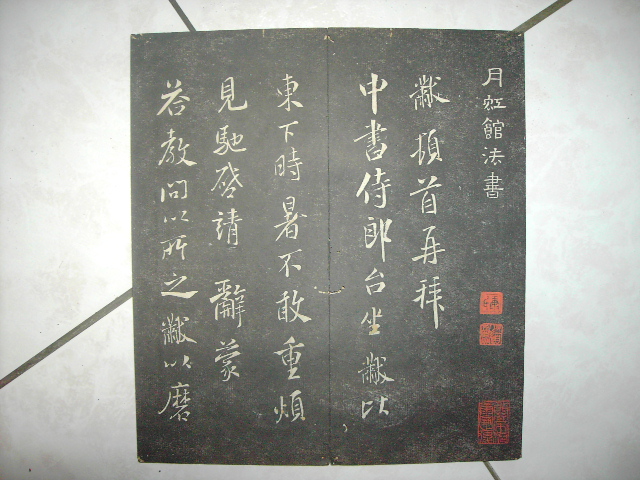 月虹館法書
黻頓首再拜
中書侍郎台坐黻比
東下時暑不敢重煩
見馳啓請辭蒙
答教問以所之黻以磨